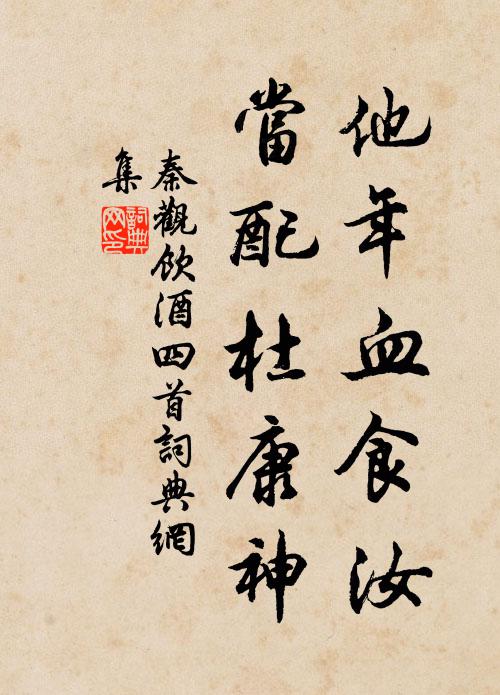 他年血食汝
當配杜康神
秦觀飲酒四首詞典網
集
詞典
网印